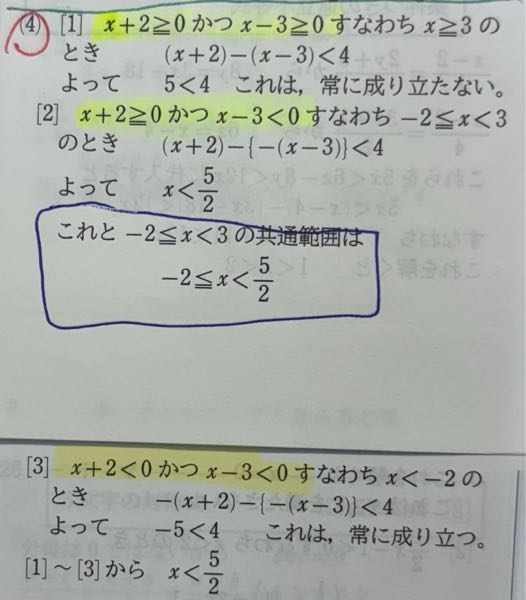 (4) [1] x+2≧0 かつ x-3≧0 すなわち x≧3 の
とき (x+2)-(x-3)<4
よって 5<4 これは,常に成り立たない。
[2] x+2≧0 かつ x-3<0 すなわち -2≦x<3
のとき (x+2)-{-(x-3)}<4
よって x<5/2
これと -2≦x<3 の共通範囲は
-2≦x<5/2
[3] x+2<0 かつ x-3<0 すなわち x<-2 の
とき -(x+2)-{-(x-3)}<4
よって -5<4 これは,常に成り立つ。
[1]~[3]から x<5/2